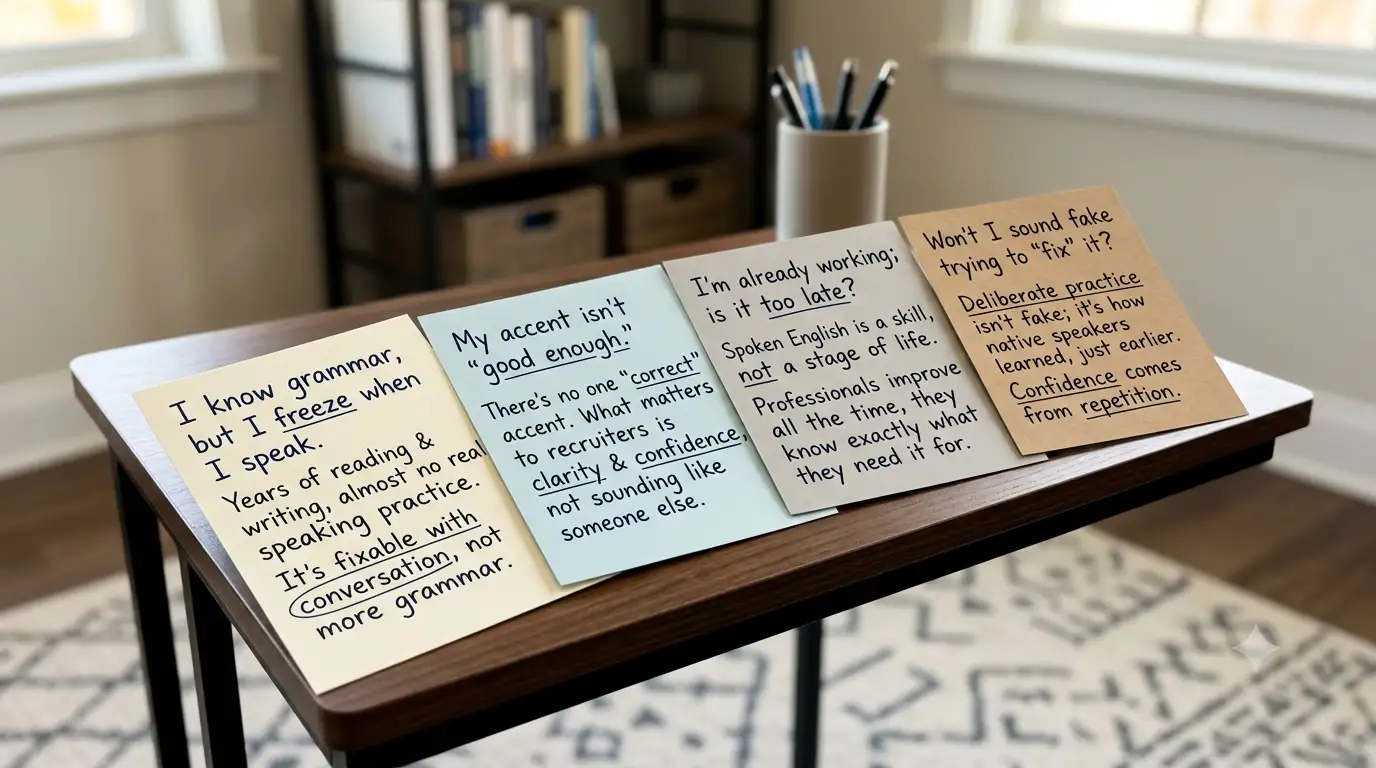 I know grammar,
but I freeze when
I speak.
Years of reading &
writing, almost no real
speaking practice.
It's fixable with
conversation, not
more grammar.
My accent isn't
"good enough."
There's no one "correct"
accent. What matters
to recruiters is
clarity & confidence,
not sounding like
someone else.
I'm already working;
is it too late?
Spoken English is a skill,
not a stage of life.
Professionals improve
all the time, they
know exactly what
they need it for.
Won't I sound fake
trying to "fix" it?
Deliberate practice
isn't fake; it's how
native speakers
learned, just earlier.
Confidence comes
from repetition.